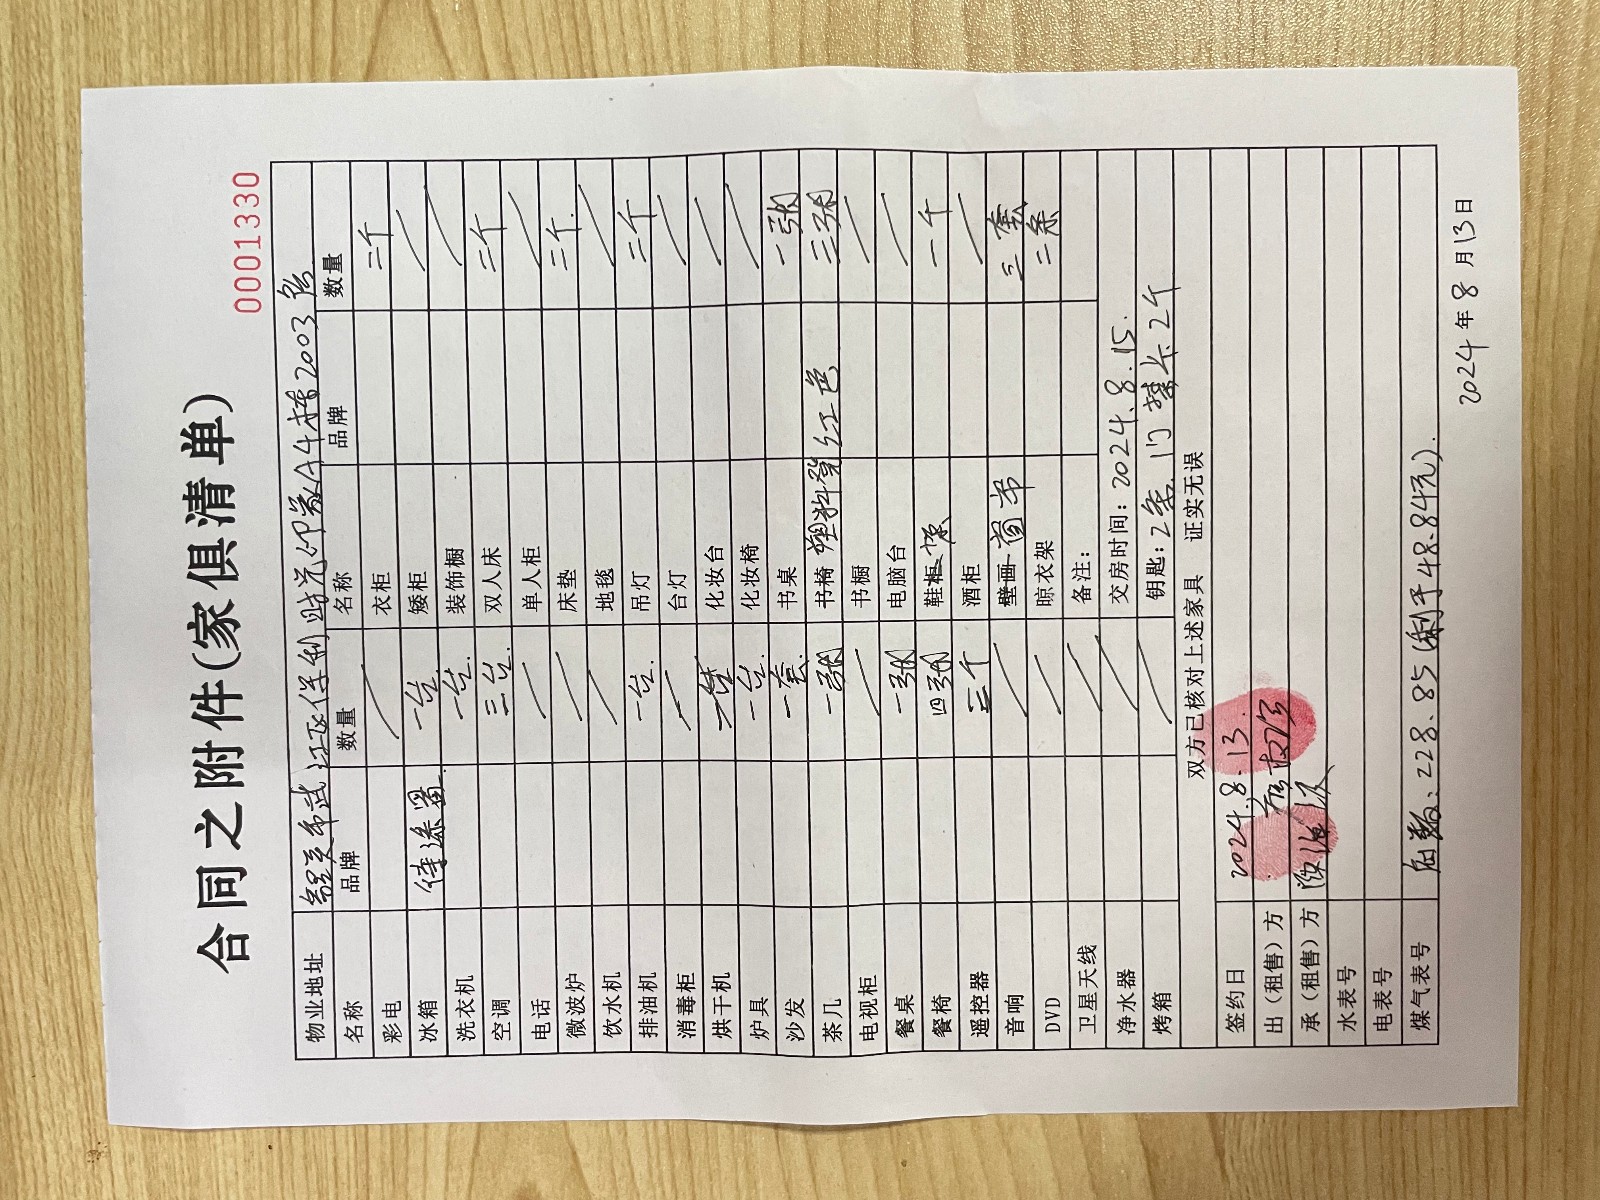 合同之附件(家俱清单)
0001330
物业地址 韶关市武江区保利时光印象A4栋2003房
名称 品牌 数量 名称 品牌 数量
彩电 / 衣柜 三个
冰箱 一台 矮柜 /
洗衣机 一台. 装饰橱 /
空调 三台. 双人床 三个
电话 / 单人柜 /
微波炉 / 床垫 三个.
饮水机 / 地毯 /
排油机 一台. 吊灯 三个
消毒柜 / 台灯 /
烘干机 化妆台 /
炉具 一台. 化妆椅 /
沙发 一套. 书桌 一张
茶几 一张 书椅 塑料凳 红色 三张
电视柜 / 书橱 /
餐桌 一张 电脑台 /
餐椅 四张 鞋柜 一个
遥控器 三个 酒柜 /
音响 / 壁画 窗帘 三套
DVD / 晾衣架 二条
卫星天线 / 备注:
净水器 / 交房时间: 2024.8.15.
烤箱 / 钥匙: 2条, 门禁卡2个
双方已核对上述家具 证实无误
签约日 2024.8.13.
出（租售）方
承（租售）方
水表号
电表号
煤气表号 228.85 (剩于48.84元).
2024年8月13日